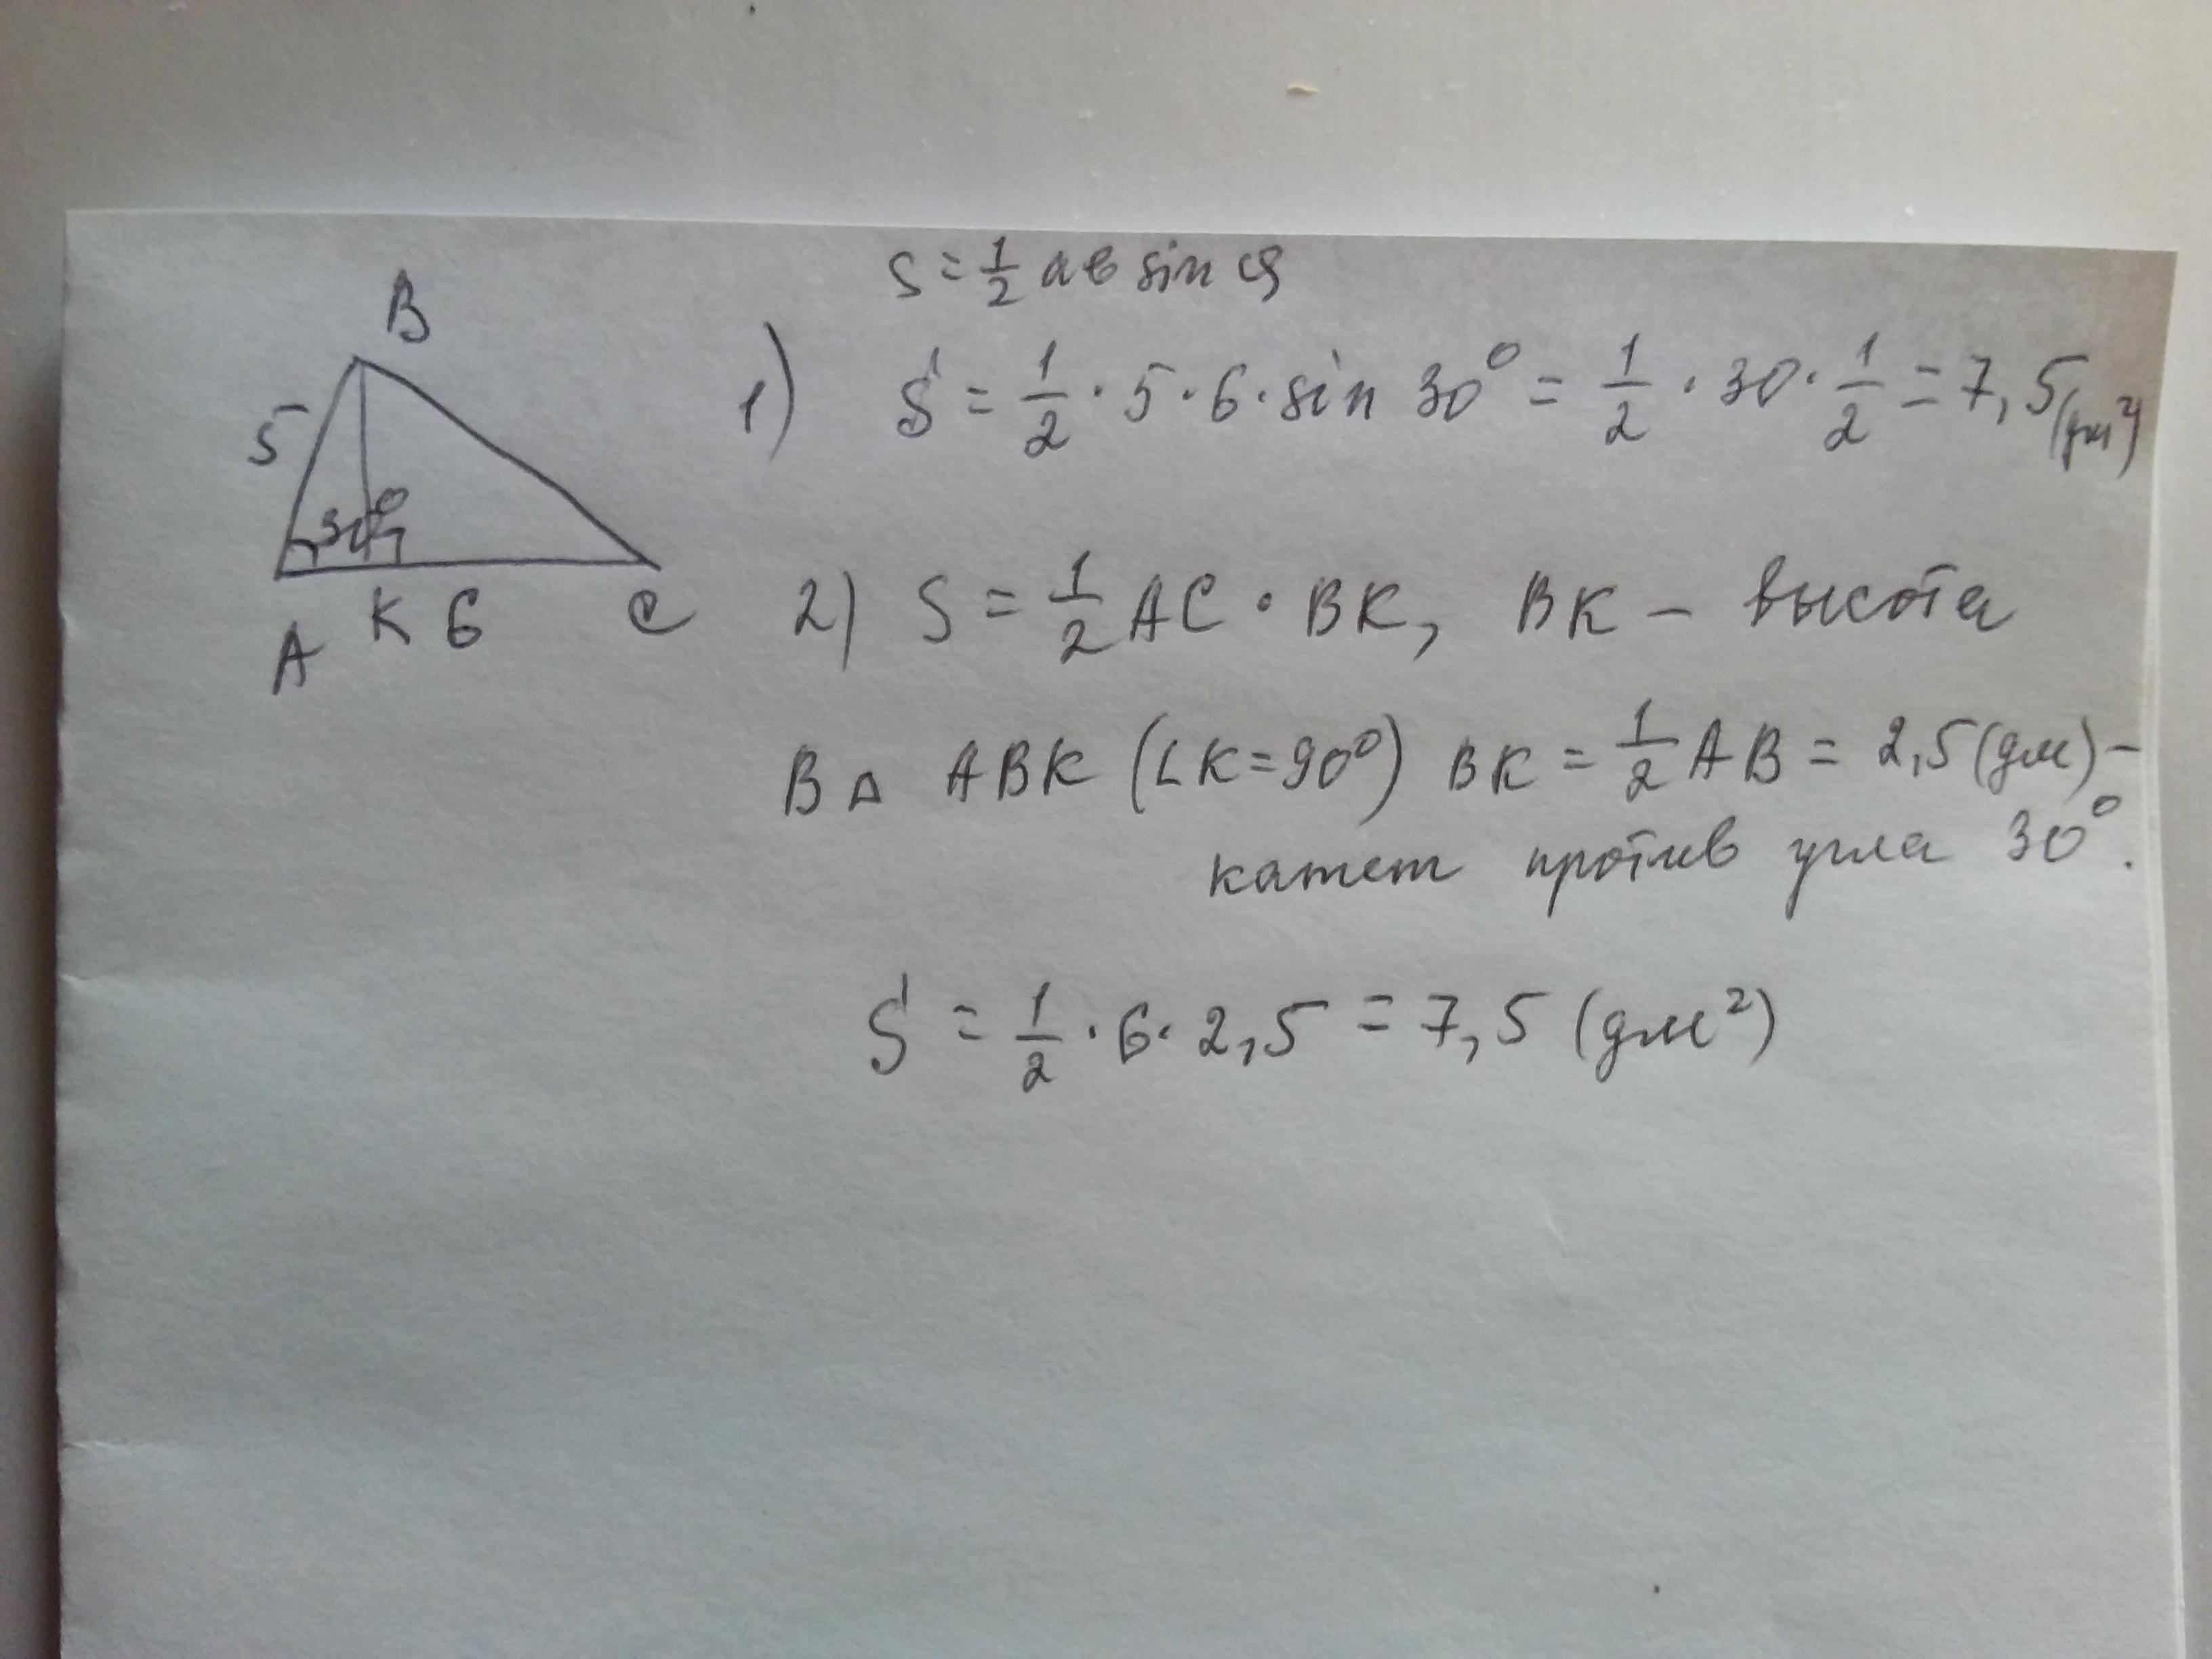 B
5
30°
A K 6 C
S = 1/2 ab sin α
1) S = 1/2 · 5 · 6 · sin 30° = 1/2 · 30 · 1/2 = 7,5 (дм²)
2) S = 1/2 AC · BK, BK – высота
В △ ABK (∠K=90°) BK = 1/2 AB = 2,5 (дм) –
катет против угла 30°.
S = 1/2 · 6 · 2,5 = 7,5 (дм²)